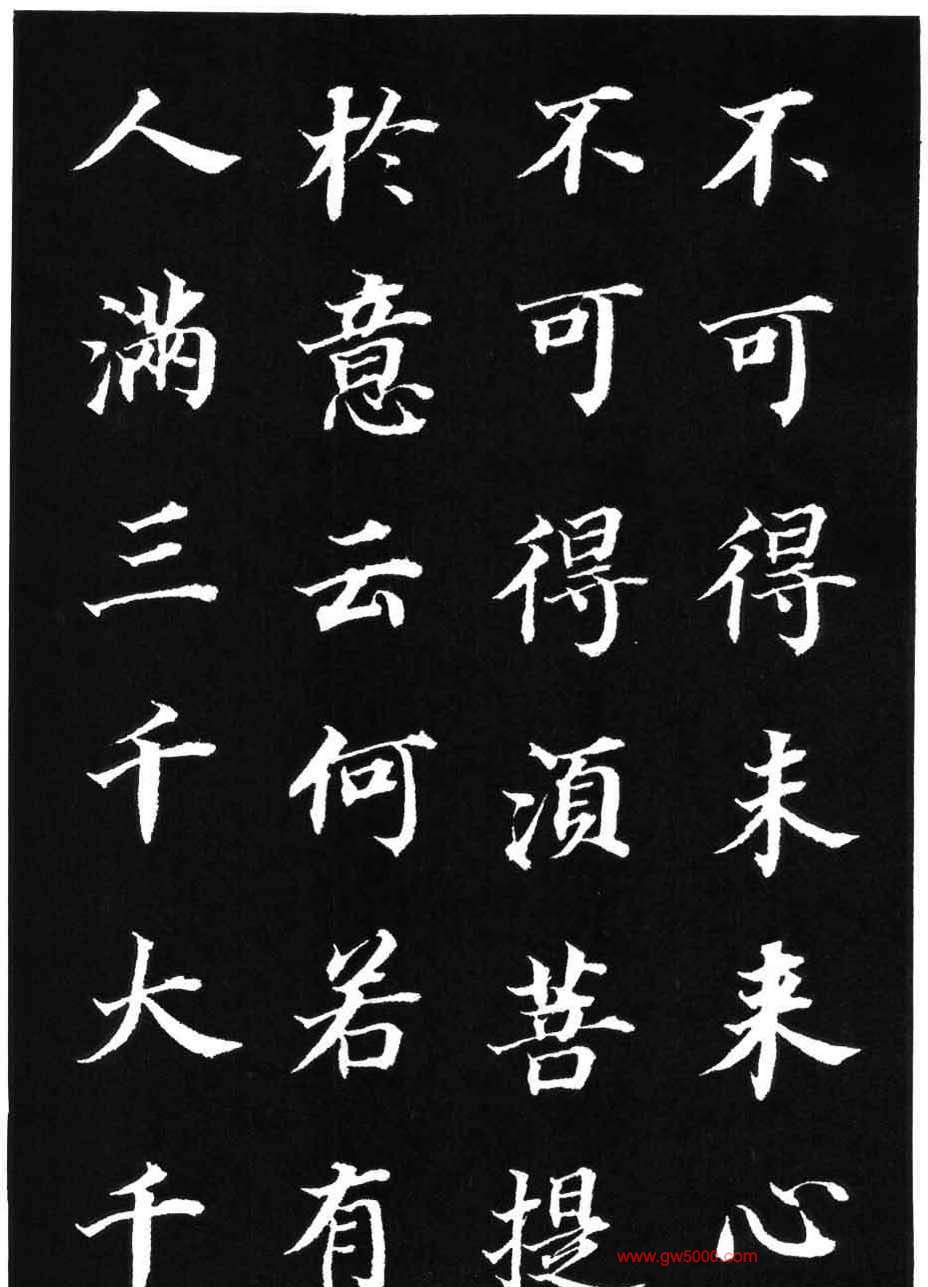 不可得未来心
不可得須菩提
於意云何若有
人滿三千大千
www.gw5000.com